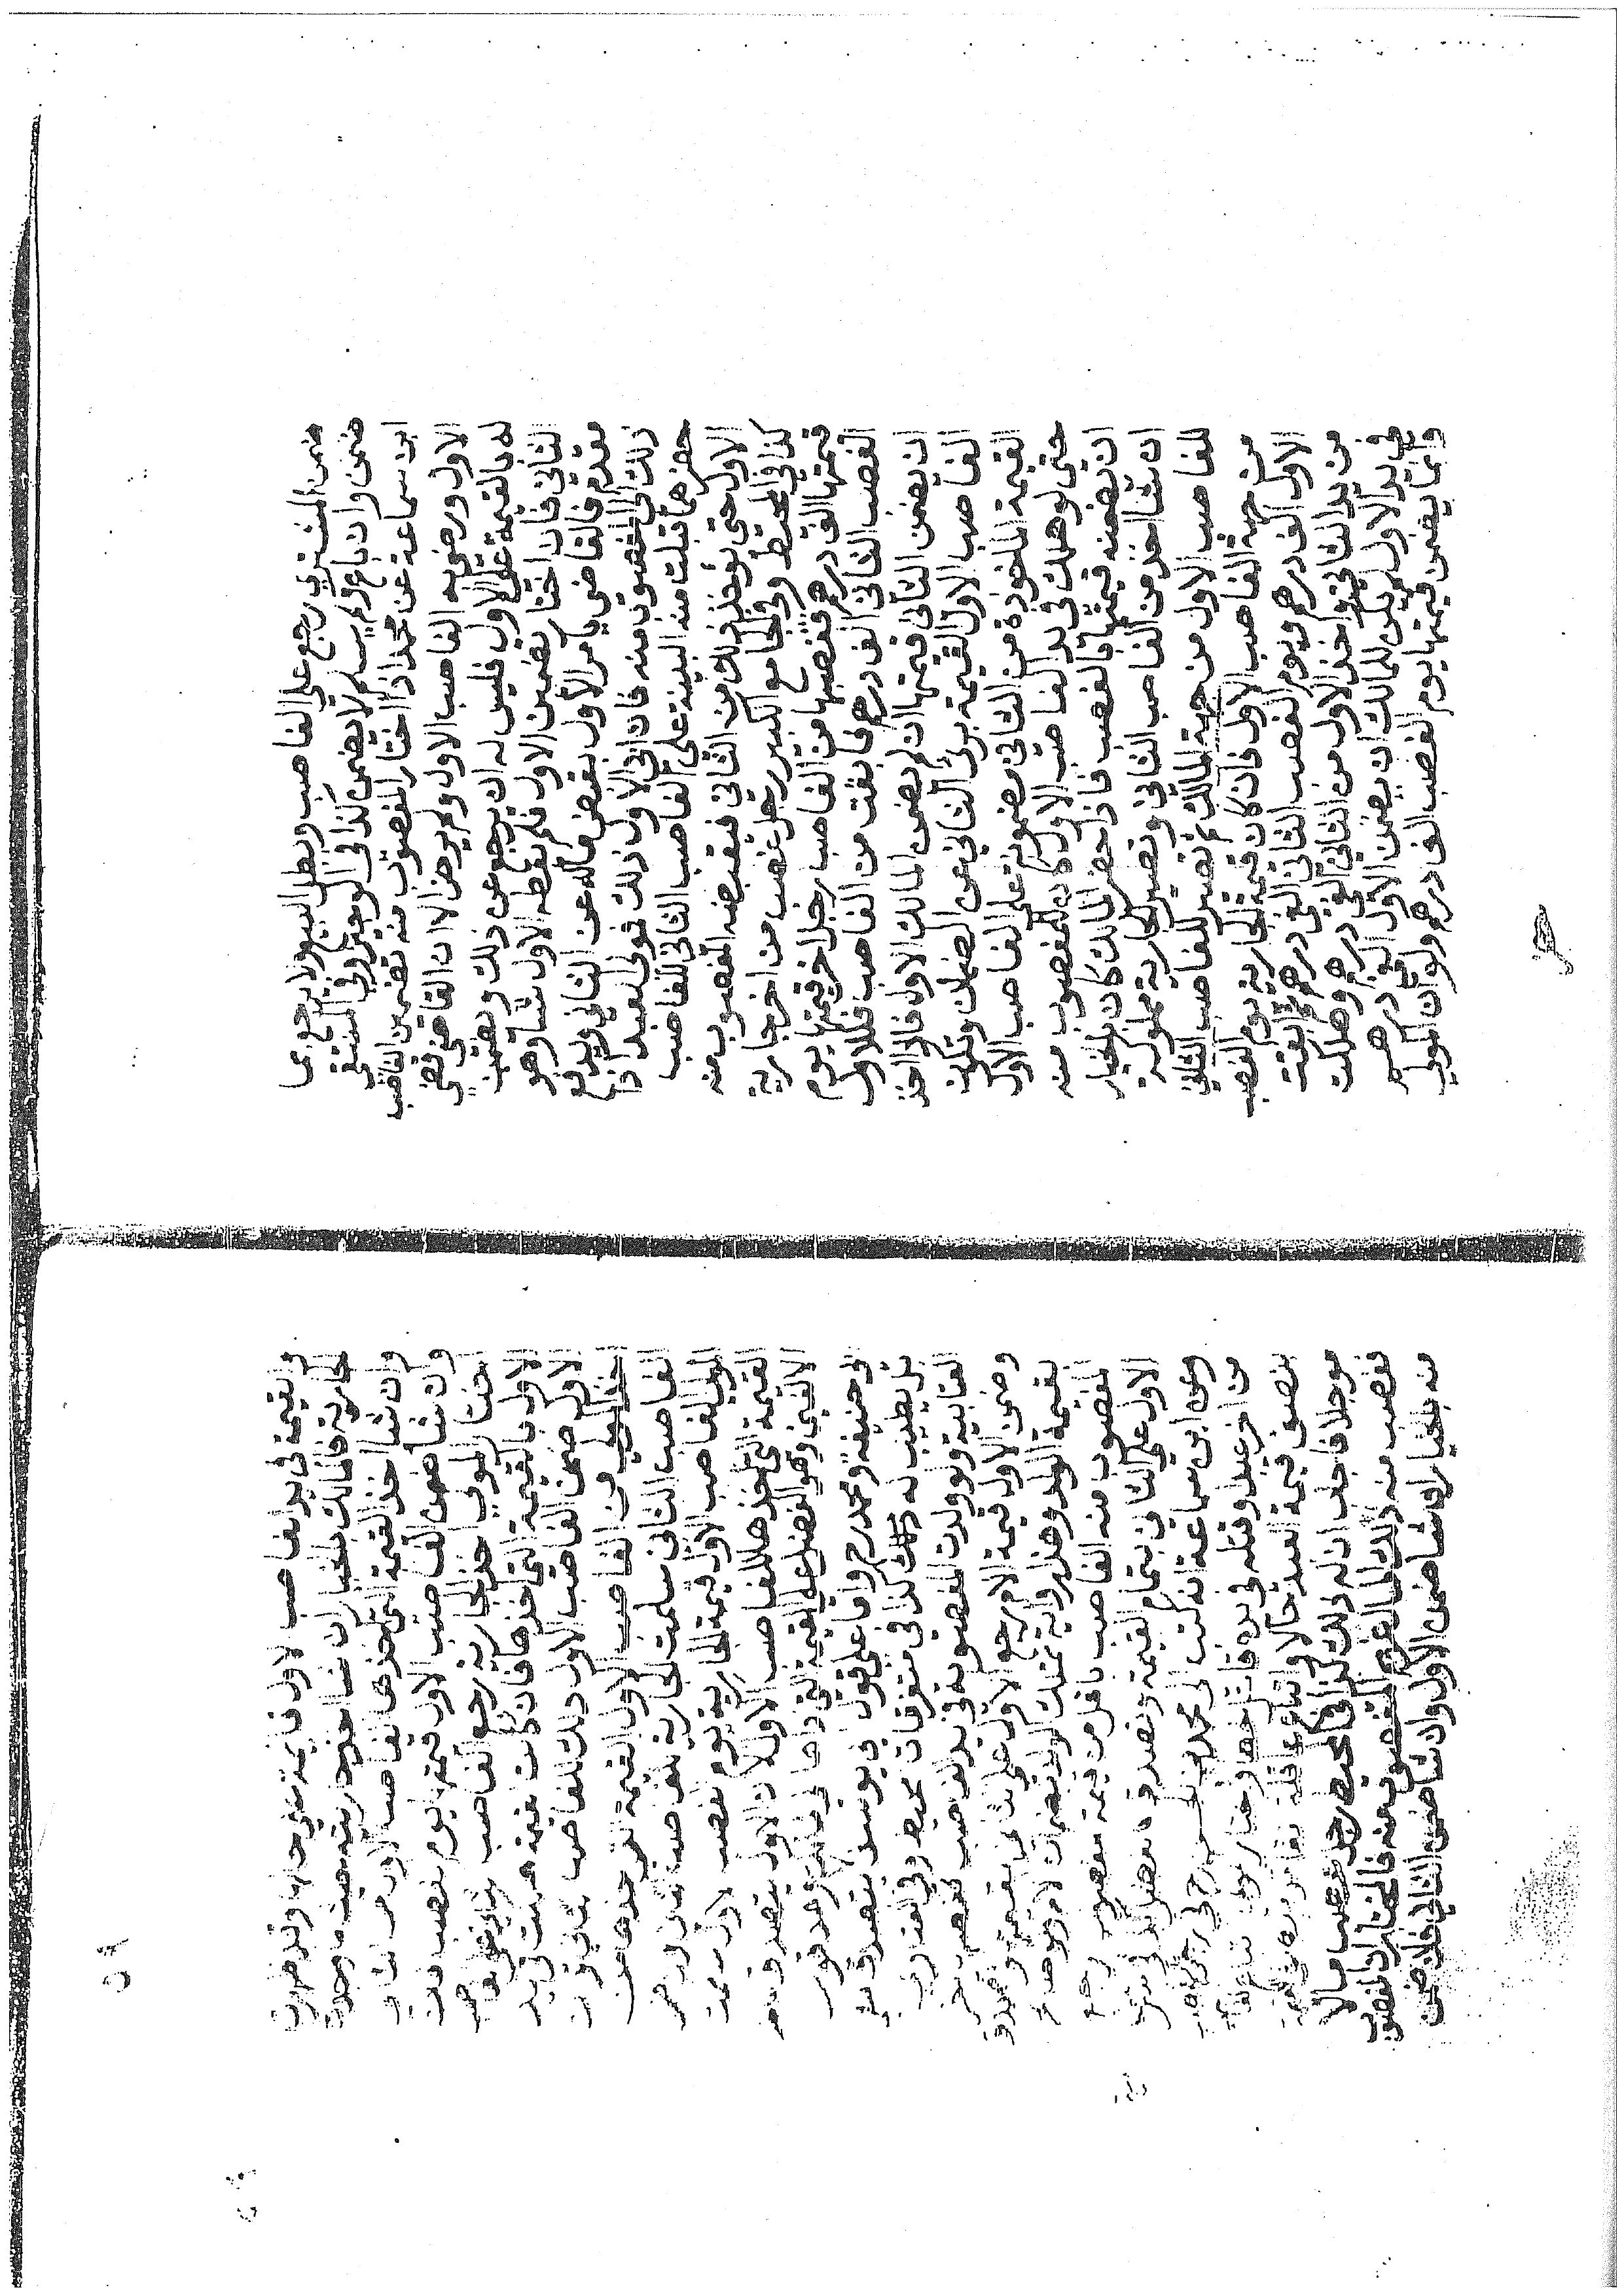 ضمن المشتري رجع على الغاصب وبطل البيع ولا يرجع بما
ضمن وان باع ولم يسلم لا يضمن كذا فى الوجيز وفى المنتقى
ابن سماعة عن محمد اذا اختار المغصوب منه تضمين الغاصب
الاول ورضي به الغاصب الاول ولم يرض الا ان القاضى قضى
له بالقيمة على الاول فليس له ان يرجع عن ذلك ويضمن
الثاني فان اختار تضمين الاول فلم يعطه الاول شيا وهو
معدم فالقاضي يامر الاول بقبض ماله عن الثاني ويدفع
ذلك الى المغصوب منه فان ابى الاول ذلك فمولى العبد اذا
حضرهما قبلت منه البينة على الغاصب الثاني للغاصب
الاول حتى يؤخذ ذلك من الثاني فيقبضه المغصوب منه
كذا في المحيط وفي الجامع الكبير رجل غصب من اخر جارية
قيمتها الف درهم فغصبها من الغاصب رجل اخر قيمتها يوم
الغصب الثانى الف درهم فابقت من الغاصب فللاول
ان يضمن الثاني قيمتها ان لم يضمن المالك الاول فاذا اخذ
الغاصب الاول القيمة برئ الثاني عن الضمان وتكون
القيمة الماخوذة من الثاني مضمونة على الغاصب الاول
حتى لو هلكت فى يد الغاصب الاول كان للمغصوب منه
ان يضمنه قيمتها بالغصب فاذا حضر المالك كان بالخيار
ان شا اخذ من الغاصب الثاني وتصير الجارية مملوكة
للغاصب الاول من جهة المالك ثم تصير للغاصب الثاني
من جهة الغاصب الاول فان كان قيمة الجارية يوم الغصب
الاول الف درهم ويوم الغصب الثاني الفى درهم فابقت
من يد الثاني واخذ الاول من الثاني الفى درهم وهلكت
فى يد الاول لم يكن للمالك ان يضمن الاول الفى درهم
وانما يضمن قيمتها يوم الغصب الف درهم ولو ان المولى
والقيمة فى يد الغاصب الاول قايمة على حالها وقد ظهرت
الجارية فالمالك بالخيار ان شا اخذ جاريته حيث ما وجدت
وان شا اخذ القيمة التى اخذها الغاصب الاول من الثاني
وان شا ضمن الغاصب الاول قيمتها يوم الغصب فان
اختار المولى اخذ الجارية رجع الغاصب الثاني على الغاصب
الاول بالقيمة التى اخذها فان كانت القيمة هلكت فى يد
الاول ضمن الغاصب الاول ذلك للغاصب الثاني وان
اخذ المولى من الغاصب الاول القيمة التى اخذها من
الغاصب الثاني سلمت الجارية للغاصب الثاني وان ضمن
المولى الغاصب الاول قيمة الجارية يوم الغصب الاول سلمت
القيمة التى اخذها للغاصب الاول الا ان الاول يتصدق
الا لفين وهو الفضل على القيمة التى اداها
ابى حنيفة ومحمد رح واما على قول ابى يوسف لا يتصدق
بل يطيب له ذلك كذا في متفرقات المحيط وفي الفتاوى
العتابية ولو ولدت المغصوبة فى يد الغاصب
وضمن الاول قيمة الام رجع الاول على الثاني بقيمتها وتصدق
بقيمة الولد وهذه رواية تملك الولد
المغصوب منه الغاصب باقل من قيمة المغصوب رجع
الاول على الثاني بتمام القيمة وتصدق بالفضل
وعن ابن سماعة انه كتب الى محمد بن الحسن فى رجل غصب
من اخر عبدا وقتله فى يده قاتل خطا واختار المولى اتباع الغاصب
بنصف قيمة العبد حالا واتباع عاقلة القاتل
موجلا فاجاب ان له ذلك كذا فى المحيط رجل غصب مالا
فغصب منه ذلك المال غيره المغصوب منه فالخيار ان المغصوب
منه بالخيار ان شا ضمن الاول وان شا ضمن الثاني فان ضمن